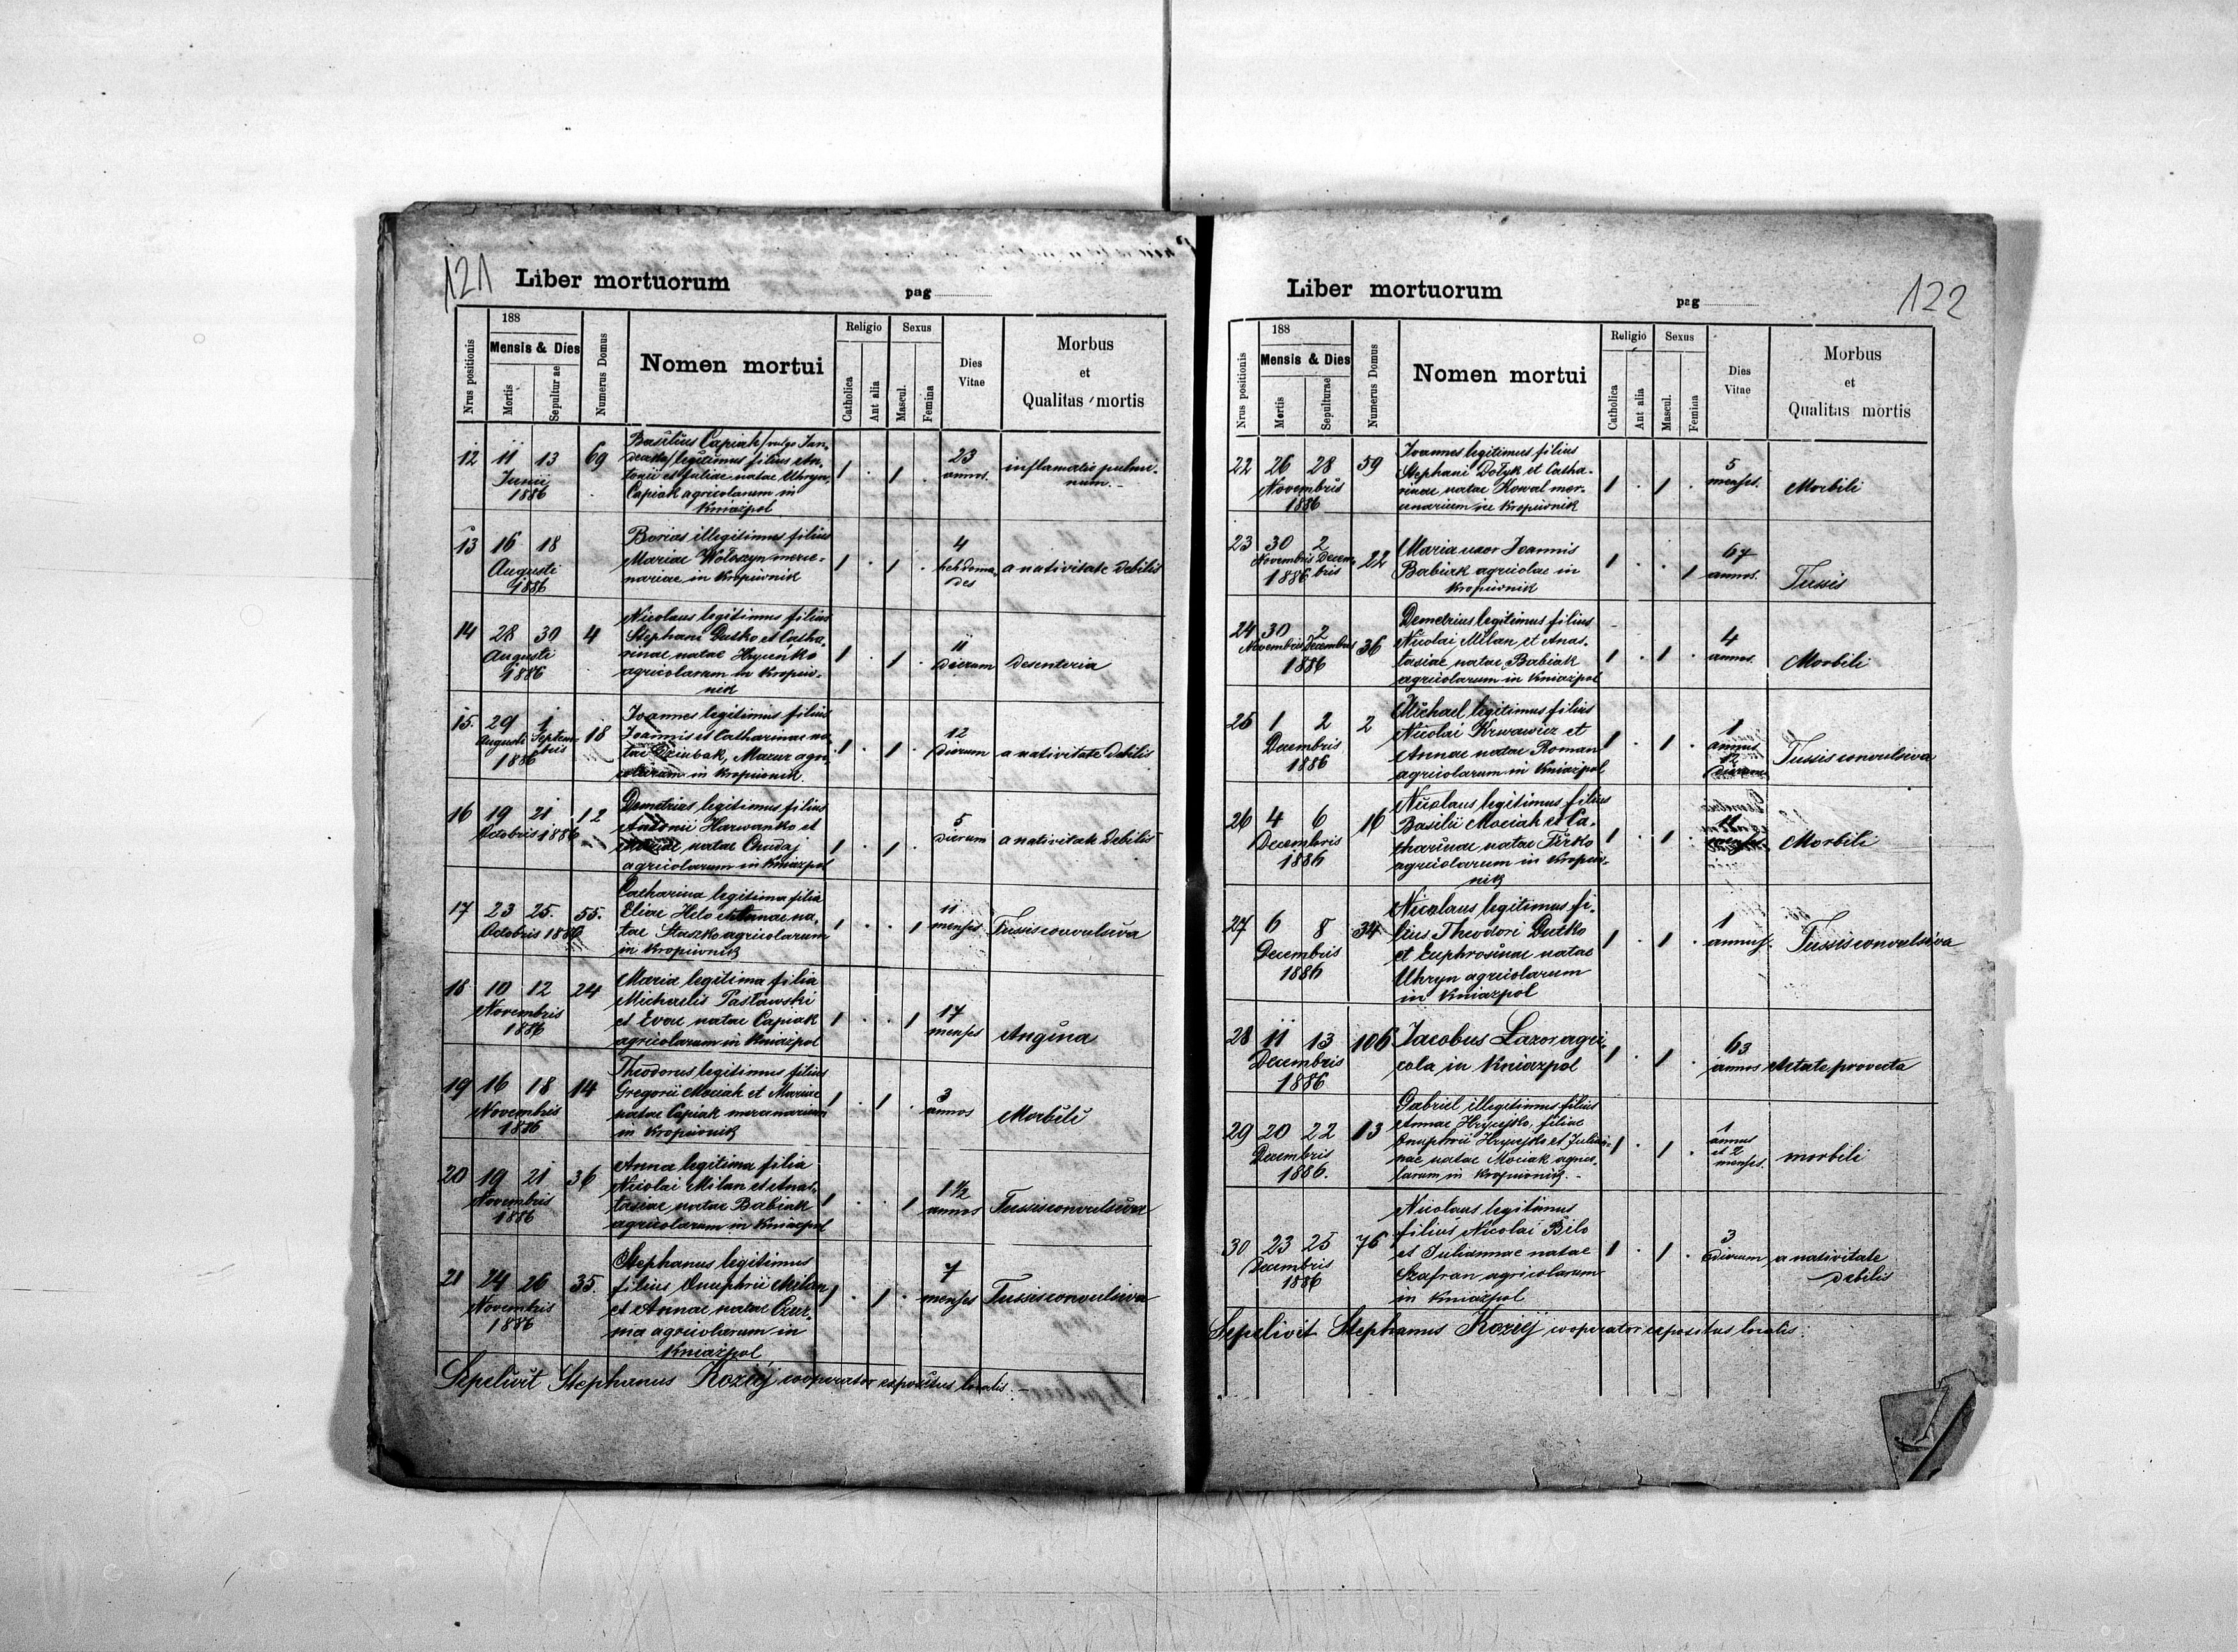 121
Liber mortuorum
pag
Nrus positionis
188
Mensis & Dies
Mortis
Sepulturae
Numerus Domus
Nomen mortui
Religio
Catholica
Aut alia
Sexus
Mascul.
Femina
Dies
Vitae
Morbus
et
Qualitas mortis
12 11 13 69
Junii
1886
Basilius Capiak /vulgo
legitimus filius An-
tonii et Juliae natae Uhryn,
Capiak agricolarum in
Kniaźpol
1 . 1 .
23
annos.
inflamatio pulmo-
num.
13 16 18
Augusti
1886
illegitimus filius
Mariae Wołoszyn merce-
nariae in Kropiwnik
1 . 1 .
4
hebdoma-
des
a nativitate debilis
14 28 30 4
Augusti
1886
Nicolaus legitimus filius
Stephani Dutko et Catha-
rinae natae Hryńko
agricolarum in Kropiw-
nik
1 . 1 .
11
dierum
desenteria
15. 29 1 18
Augusti Septem-
bris
1886
Joannes legitimus filius
Joannis et Catharinae na-
tae Dziubak, Mazur agri-
colarum in Kropiwnik.
1 . 1 .
12
dierum
a nativitate debilis
16 19 21 12
Octobris 1886
Demetrius legitimus filius
Antonii Harwanko et
Mariae natae Chudaj
agricolarum in Kniazpol
1 . 1 .
5
dierum
a nativitate debilis
17 23 25. 55.
Octobris 1886
Catharina legitima filia
Eliae Helo et Annae na-
tae Staszko agricolarum
in Kropiwnik
1 . . 1
11
menses
Tussis convulsiva
18 10 12 24
Novembris
1886
Maria legitima filia
Michaelis Pasławski
et Evae natae Capiak
agricolarum in Kniazpol
1 . . 1
17
menses
Angina
19 16 18 14
Novembris
1886
Theodorus legitimus filius
Gregorii Mociak et Mariae
natae Capiak mercenariorum
in Kropiwnik
1 . 1 .
3
annos
Morbili
20 19 21 36
Novembris
1886
Anna legitima filia
Nicolai Milan et Anas-
tasiae natae Babiak
agricolarum in Kniazpol
1 . . 1
1 1/2
annos
Tussis convulsiva
21 24 26 35.
Novembris
1886
Stephanus legitimus
filius Onuphrii Milan
et Annae natae Czar-
nia agricolarum in
Kniaźpol
1 . 1 .
7
menses
Tussis convulsiva
Sepelivit Stephanus Kozij cooperator expositus localis.
122
Liber mortuorum
pag
Nrus positionis
188
Mensis & Dies
Mortis
Sepulturae
Numerus Domus
Nomen mortui
Religio
Catholica
Aut alia
Sexus
Mascul.
Femina
Dies
Vitae
Morbus
et
Qualitas mortis
22 26 28 59
Novembris
1886
Joannes legitimus filius
Stephani Dołyk et Catha-
rinae natae Kowal mer-
cenarium in Kropiwnik
1 . 1 .
5
menses.
Morbili
23 30 2 22
Novembris Decem-
bris
1886
Maria uxor Joannis
Babiak agricolae in
Kropiwnik
1 . . 1
67
annos.
Tussis
24 30 2 36
Novembris Decembris
1886
Demetrius legitimus filius
Nicolai Milan et Anas-
tasiae natae Babiak
agricolarum in Kniazpol
1 . 1 .
4
annos.
Morbili
25 1 2 2
Decembris
1886
Michael legitimus filius
Nicolai Krwawicz et
Annae natae Roman
agricolarum in Kniazpol
1 . 1 .
1
annus
12
dierum
Tussis convulsiva
26 4 6 16
Decembris
1886
Nicolaus legitimus filius
Basilii Mociak et Ca-
tharinae natae Firko
agricolarum in Kropiw-
nik
1 . 1 .
menses
Morbili
27 6 8 34
Decembris
1886
Nicolaus legitimus fi-
lius Theodori Dutko
et Euphrosinae natae
Uhryn agricolarum
in Kniazpol
1 . 1 .
1
annus.
Tussis convulsiva
28 11 13 106
Decembris
1886
Jacobus Lazor agri-
cola in Kniazpol
1 . 1 .
63
annos
Aetate provecta
29 20 22 13
Decembris
1886.
Gabriel illegitimus filius
Annae filiae
Onuphrii et Julian-
nae natae Mociak agrico-
larum in Kropiwnik.
1 . 1 .
1
annus
et 2
menses.
morbili
30 23 25 76
Decembris
1886
Nicolaus legitimus
filius Nicolai Bilo
et Juliannae natae
Szafran agricolarum
in Kniazpol
1 . 1 .
3
dierum
a nativitate
debilis
Sepelivit Stephanus Kozij cooperator expositus localis.